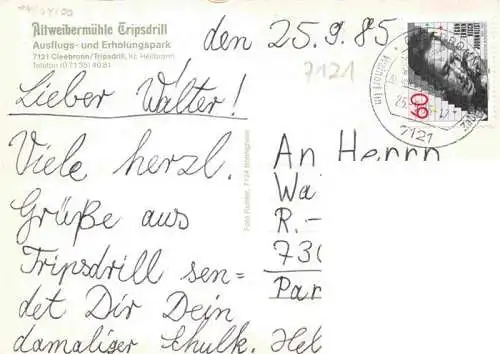 Altweibermühle Tripsdrill
Ausflugs- und Erholungspark
7121 Cleebronn/Tripsdrill, Kr. Heilbronn
Telefon (0 71 35) 40 81
den 25.9.85
7121
60
7121
Lieber Walter!
Viele herzl.
Grüße aus
Tripsdrill sen-
det Dir Dein
damaliger Schulk. Hel
An Herrn
Wa
R.-
730
Par